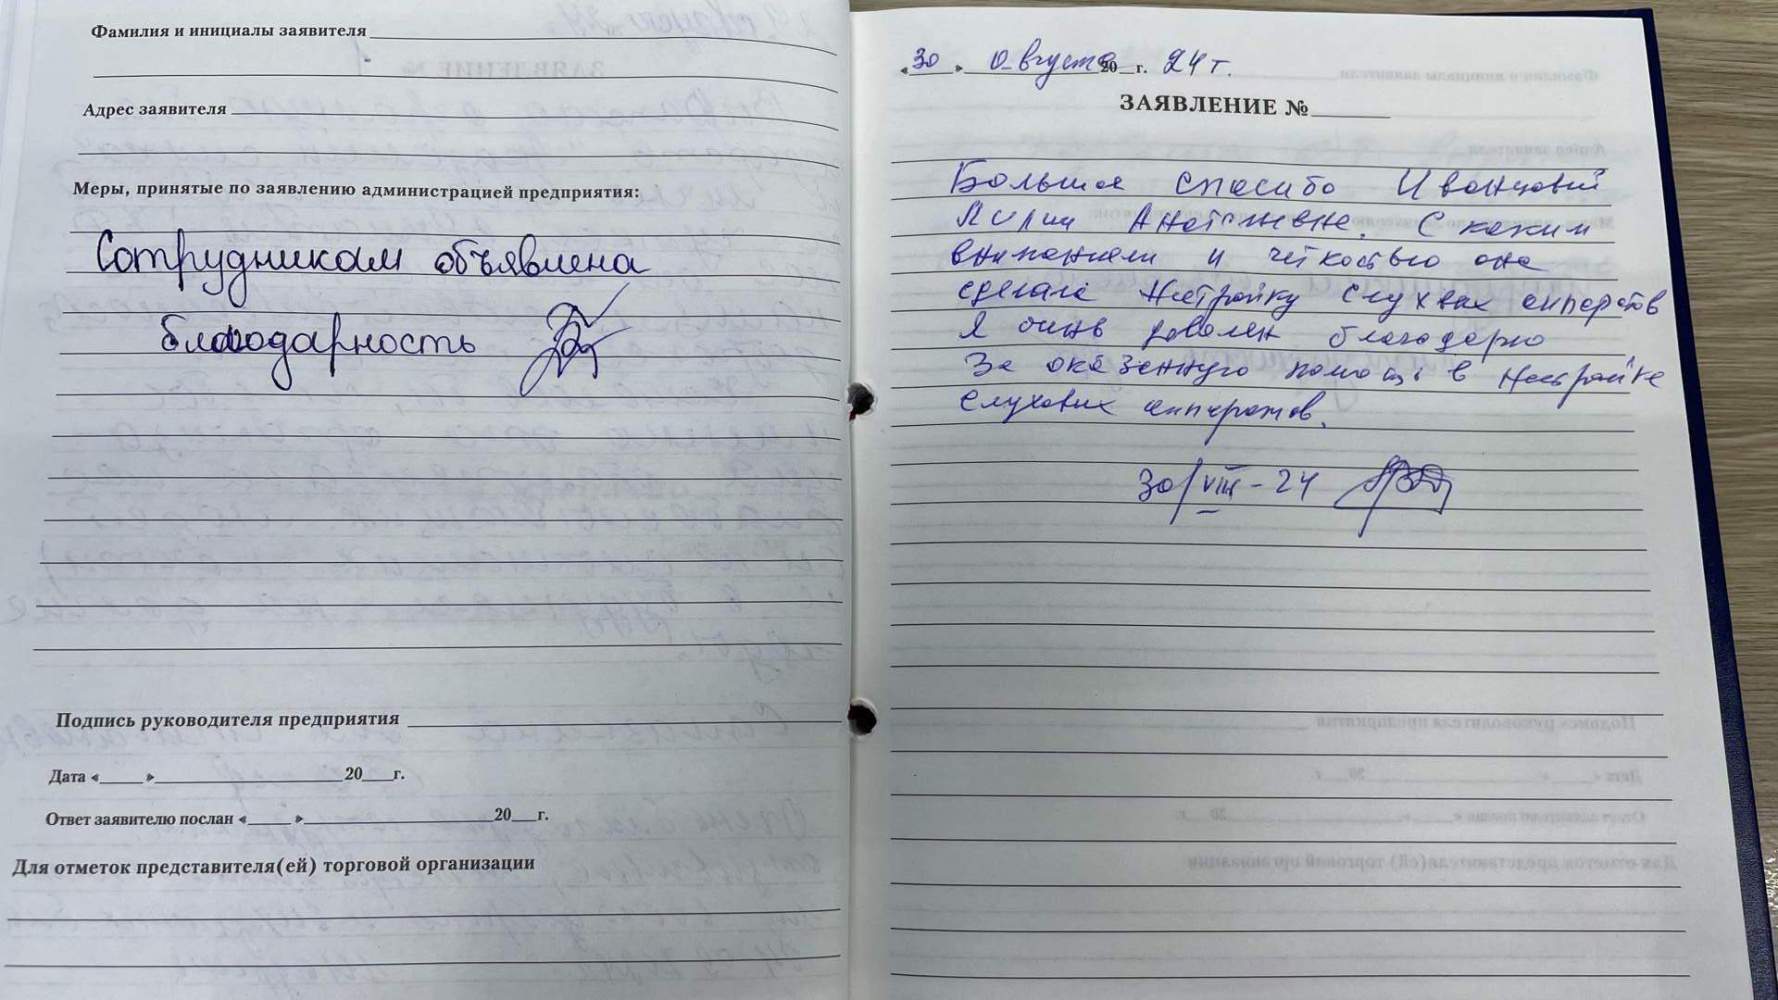 Фамилия и инициалы заявителя
Адрес заявителя
Меры, принятые по заявлению администрацией предприятия:
Сотрудникам объявлена
благодарность
Подпись руководителя предприятия
Дата «    »    20    г.
Ответ заявителю послан «    »    20    г.
Для отметок представителя(ей) торговой организации
«30» августа 20 г. 24 г.
ЗАЯВЛЕНИЕ №
Большое спасибо Иванцовой
Лилии Анатольевне. С каким
вниманием и чёткостью она
сделала настройку слуховых аппаратов
Я очень доволен благодарю
За оказанную помощь в настройке
слуховых аппаратов.
30/VIII-24